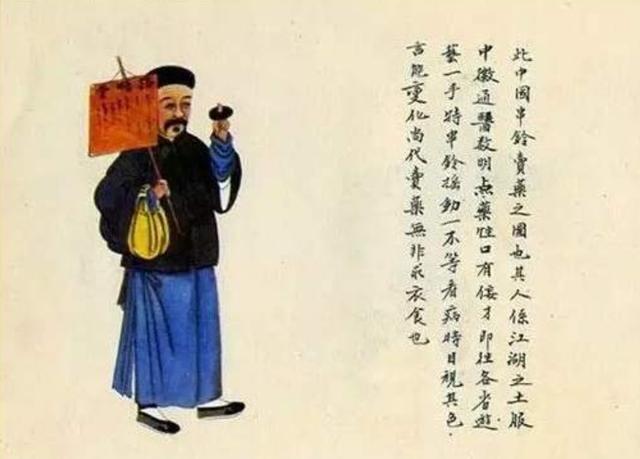 此中國串鈴賣藥之圖也其人係江湖之士服
中徽通醫数明点藥性口有佞才即往各省遊
藝一手持串鈴搖動一不等看病時目視其色
言能變化尚代賣藥無非求衣食也